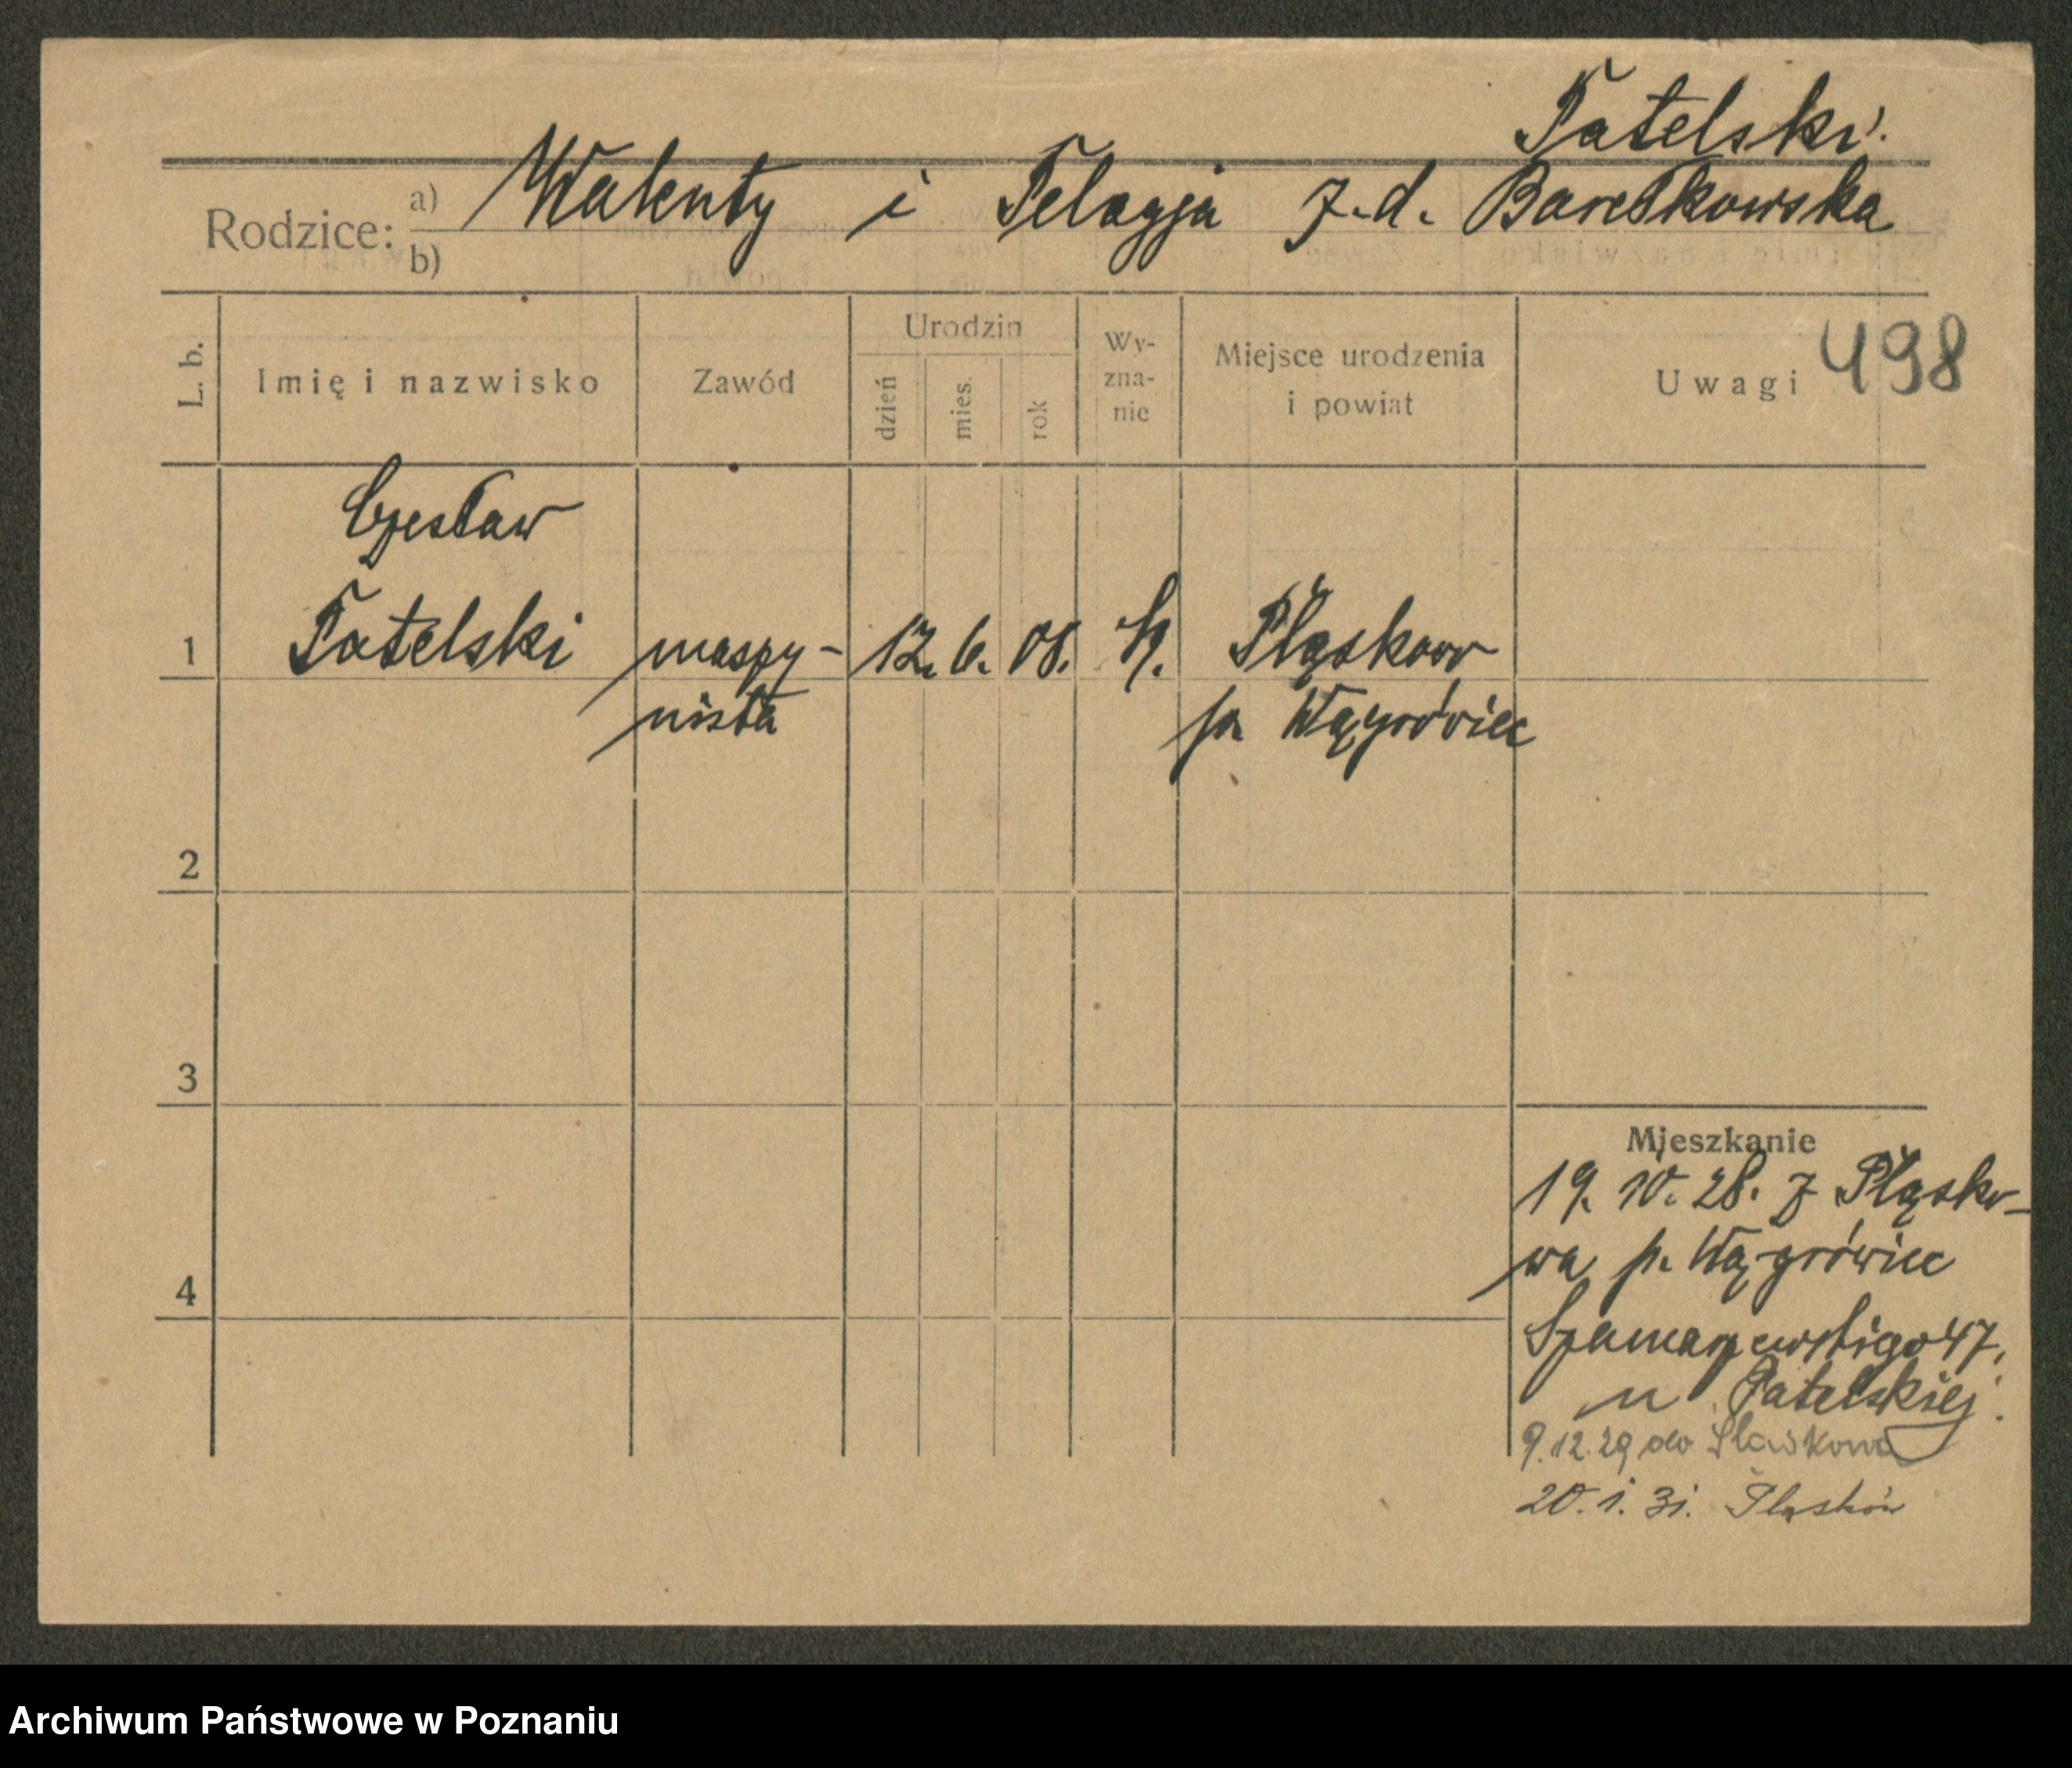 Patelski.
Rodzice: a) Walenty i Pelagja z.d. Bartkowska
b)
L. b.
Imię i nazwisko
Zawód
Urodzin
dzień
mies.
rok
Wy-
zna-
nie
Miejsce urodzenia
i powiat
Uwagi
498
Czesław
1 Patelski maszy- 12. 6. 08. K. Pląskowo
nista p. Wągrówiec
2
3
4
Mieszkanie
19. 10. 28. z Pląsko-
wa p. Wągrówiec
Szamarzewskiego 47,
u Patelskiej.
9.12.29 do
20. 1. 31. Pląsków
Archiwum Państwowe w Poznaniu